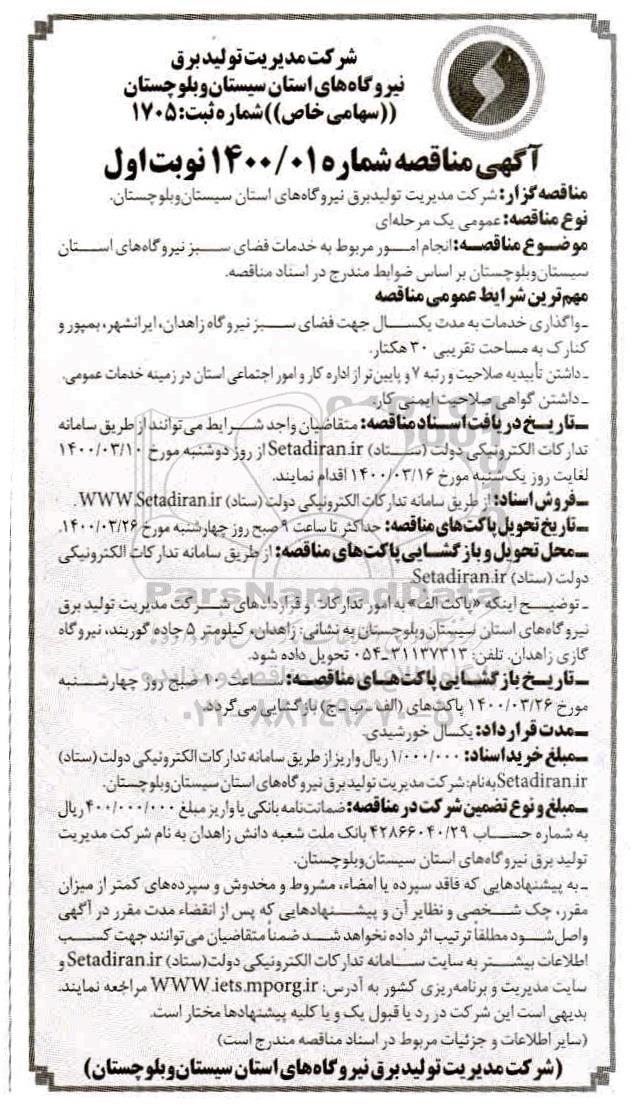 شرکت مدیریت تولید برق
نیروگاه‌های استان سیستان‌وبلوچستان
((سهامی خاص))شماره ثبت: ۱۷۰۵
آگهی مناقصه شماره ۱۴۰۰/۰۱ نوبت اول
مناقصه گزار: شرکت مدیریت تولیدبرق نیروگاه‌های استان سیستان‌وبلوچستان.
نوع مناقصه: عمومی یک مرحله‌ای
موضوع مناقصه: انجام امور مربوط به خدمات فضای سبز نیروگاه‌های استان
سیستان‌وبلوچستان بر اساس ضوابط مندرج در اسناد مناقصه.
مهم‌ترین شرایط عمومی مناقصه
ـ واگذاری خدمات به مدت یکسال جهت فضای سبز نیروگاه زاهدان، ایرانشهر، بمپور و
کنارک به مساحت تقریبی ۳۰ هکتار.
ـ داشتن تأییدیه صلاحیت و رتبه ۷ و پایین‌تر از اداره کار و امور اجتماعی استان در زمینه خدمات عمومی.
ـ داشتن گواهی صلاحیت ایمنی کار.
ـ تاریخ دریافت اسناد مناقصه: متقاضیان واجد شرایط می‌توانند از طریق سامانه
تدارکات الکترونیکی دولت (ستاد) Setadiran.ir از روز دوشنبه مورخ ۱۴۰۰/۰۳/۱۰
لغایت روز یک‌شنبه مورخ ۱۴۰۰/۰۳/۱۶ اقدام نمایند.
ـ فروش اسناد: از طریق سامانه تدارکات الکترونیکی دولت (ستاد) WWW.Setadiran.ir .
ـ تاریخ تحویل پاکت‌های مناقصه: حداکثر تا ساعت ۹ صبح روز چهارشنبه مورخ ۱۴۰۰/۰۳/۲۶.
ـ محل تحویل و بازگشایی پاکت‌های مناقصه: از طریق سامانه تدارکات الکترونیکی
دولت (ستاد) Setadiran.ir.
ـ توضیح اینکه «پاکت الف» به امور تدارکات و قراردادهای شرکت مدیریت تولید برق
نیروگاه‌های استان سیستان‌وبلوچستان به نشانی: زاهدان، کیلومتر ۵ جاده گوربند، نیروگاه
گازی زاهدان. تلفن: ۳۱۱۳۷۳۱۳-۰۵۴ تحویل داده شود.
ـ تاریخ بازگشایی پاکت‌های مناقصه: ساعت ۱۰ صبح روز چهارشنبه
مورخ ۱۴۰۰/۰۳/۲۶ پاکت‌های (الف -ب -ج) بازگشایی می‌گردد.
ـ مدت قرارداد: یکسال خورشیدی.
ـ مبلغ خرید اسناد: ۱/۰۰۰/۰۰۰ ریال واریز از طریق سامانه تدارکات الکترونیکی دولت (ستاد)
Setadiran.ir به‌نام: شرکت مدیریت تولیدبرق نیروگاه‌های استان سیستان‌وبلوچستان.
ـ مبلغ و نوع تضمین شرکت در مناقصه: ضمانت‌نامه بانکی یا واریز مبلغ ۴۰۰/۰۰۰/۰۰۰ ریال
به شماره حساب ۴۲۸۶۶۰۴۰/۲۹ بانک ملت شعبه دانش زاهدان به نام شرکت مدیریت
تولید برق نیروگاه‌های استان سیستان‌وبلوچستان.
ـ به پیشنهادهایی که فاقد سپرده یا امضاء، مشروط و مخدوش و سپرده‌های کمتر از میزان
مقرر، چک شخصی و نظایر آن و پیشنهادهایی که پس از انقضاء مدت مقرر در آگهی
واصل شود مطلقا ترتیب اثر داده نخواهد شد ضمناً متقاضیان می‌توانند جهت کسب
اطلاعات بیشتر به سایت سامانه تدارکات الکترونیکی دولت(ستاد) Setadiran.ir و
سایت مدیریت و برنامه‌ریزی کشور به آدرس: WWW.iets.mporg.ir مراجعه نمایند.
بدیهی است این شرکت در رد یا قبول یک و یا کلیه پیشنهادها مختار است.
(سایر اطلاعات و جزئیات مربوط در اسناد مناقصه مندرج است)
(شرکت مدیریت تولید برق نیروگاه‌های استان سیستان‌وبلوچستان)
ParsNamadData